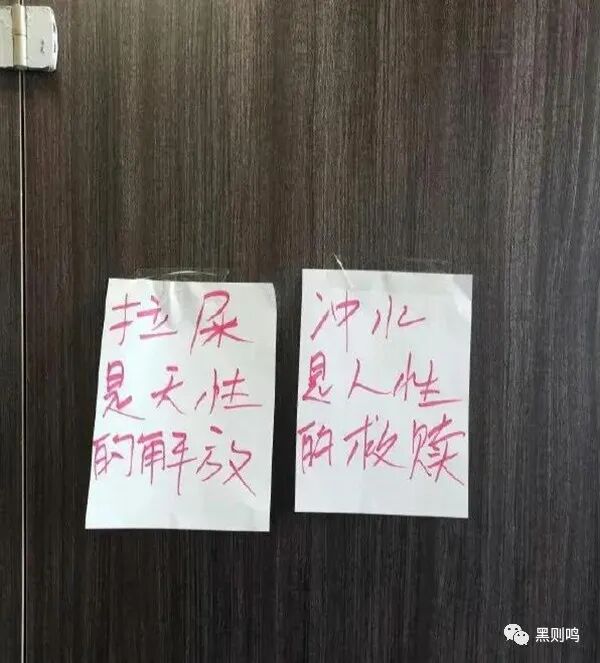 拉屎
是天性
的解放
冲水
是人性
的救赎
黑则鸣